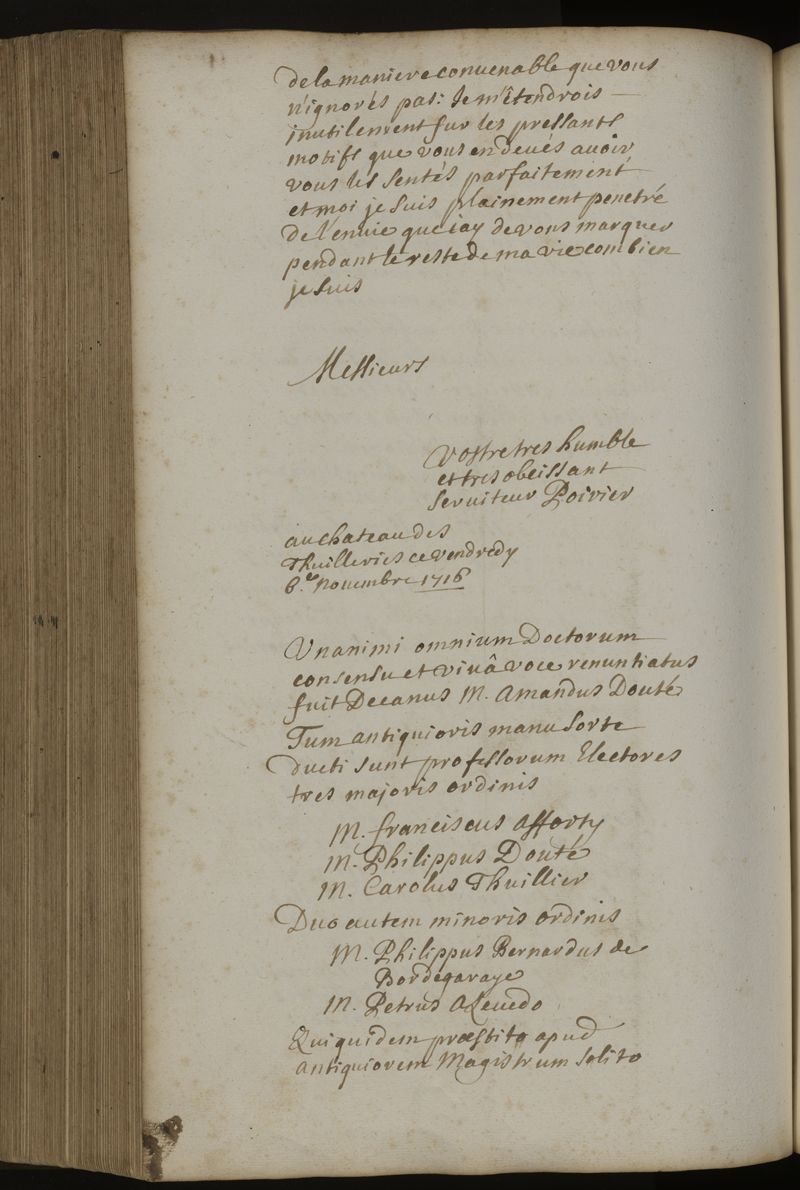 de la maniere conuenable que vous
n'ignorés pas: Je m'êtendrois —
inutilement sur les pressants
motifs que vous en deués auoir
vous les sentés parfaitement
et moi je suis plainement penetré
de l'enuie que iay de vous marquer
pendant le reste de ma vie combien
je suis
Messieurs
vostre tres humble
et tres obeissant
seruiteur Poirier
au chateau des
Thuilleries ce vendredy
6.e Nouembre 1716
Vnanimi omnium Doctorum
consensu et viuâ voce renuntiatus
fuit Decanus M. Amandus Douté
Tum antiquioris manu sorte
ducti sunt professorum Electores
tres majoris ordinis
M. franciscus Afforty
M. Philippus Douté
M. Carolus Thuillier
Duo autem minoris ordinis
M. Philippus Bernardus de
Bordegaraye
M. Petrus Azeuedo
Qui quidem præstito apud
antiquiorem Magistrum solito